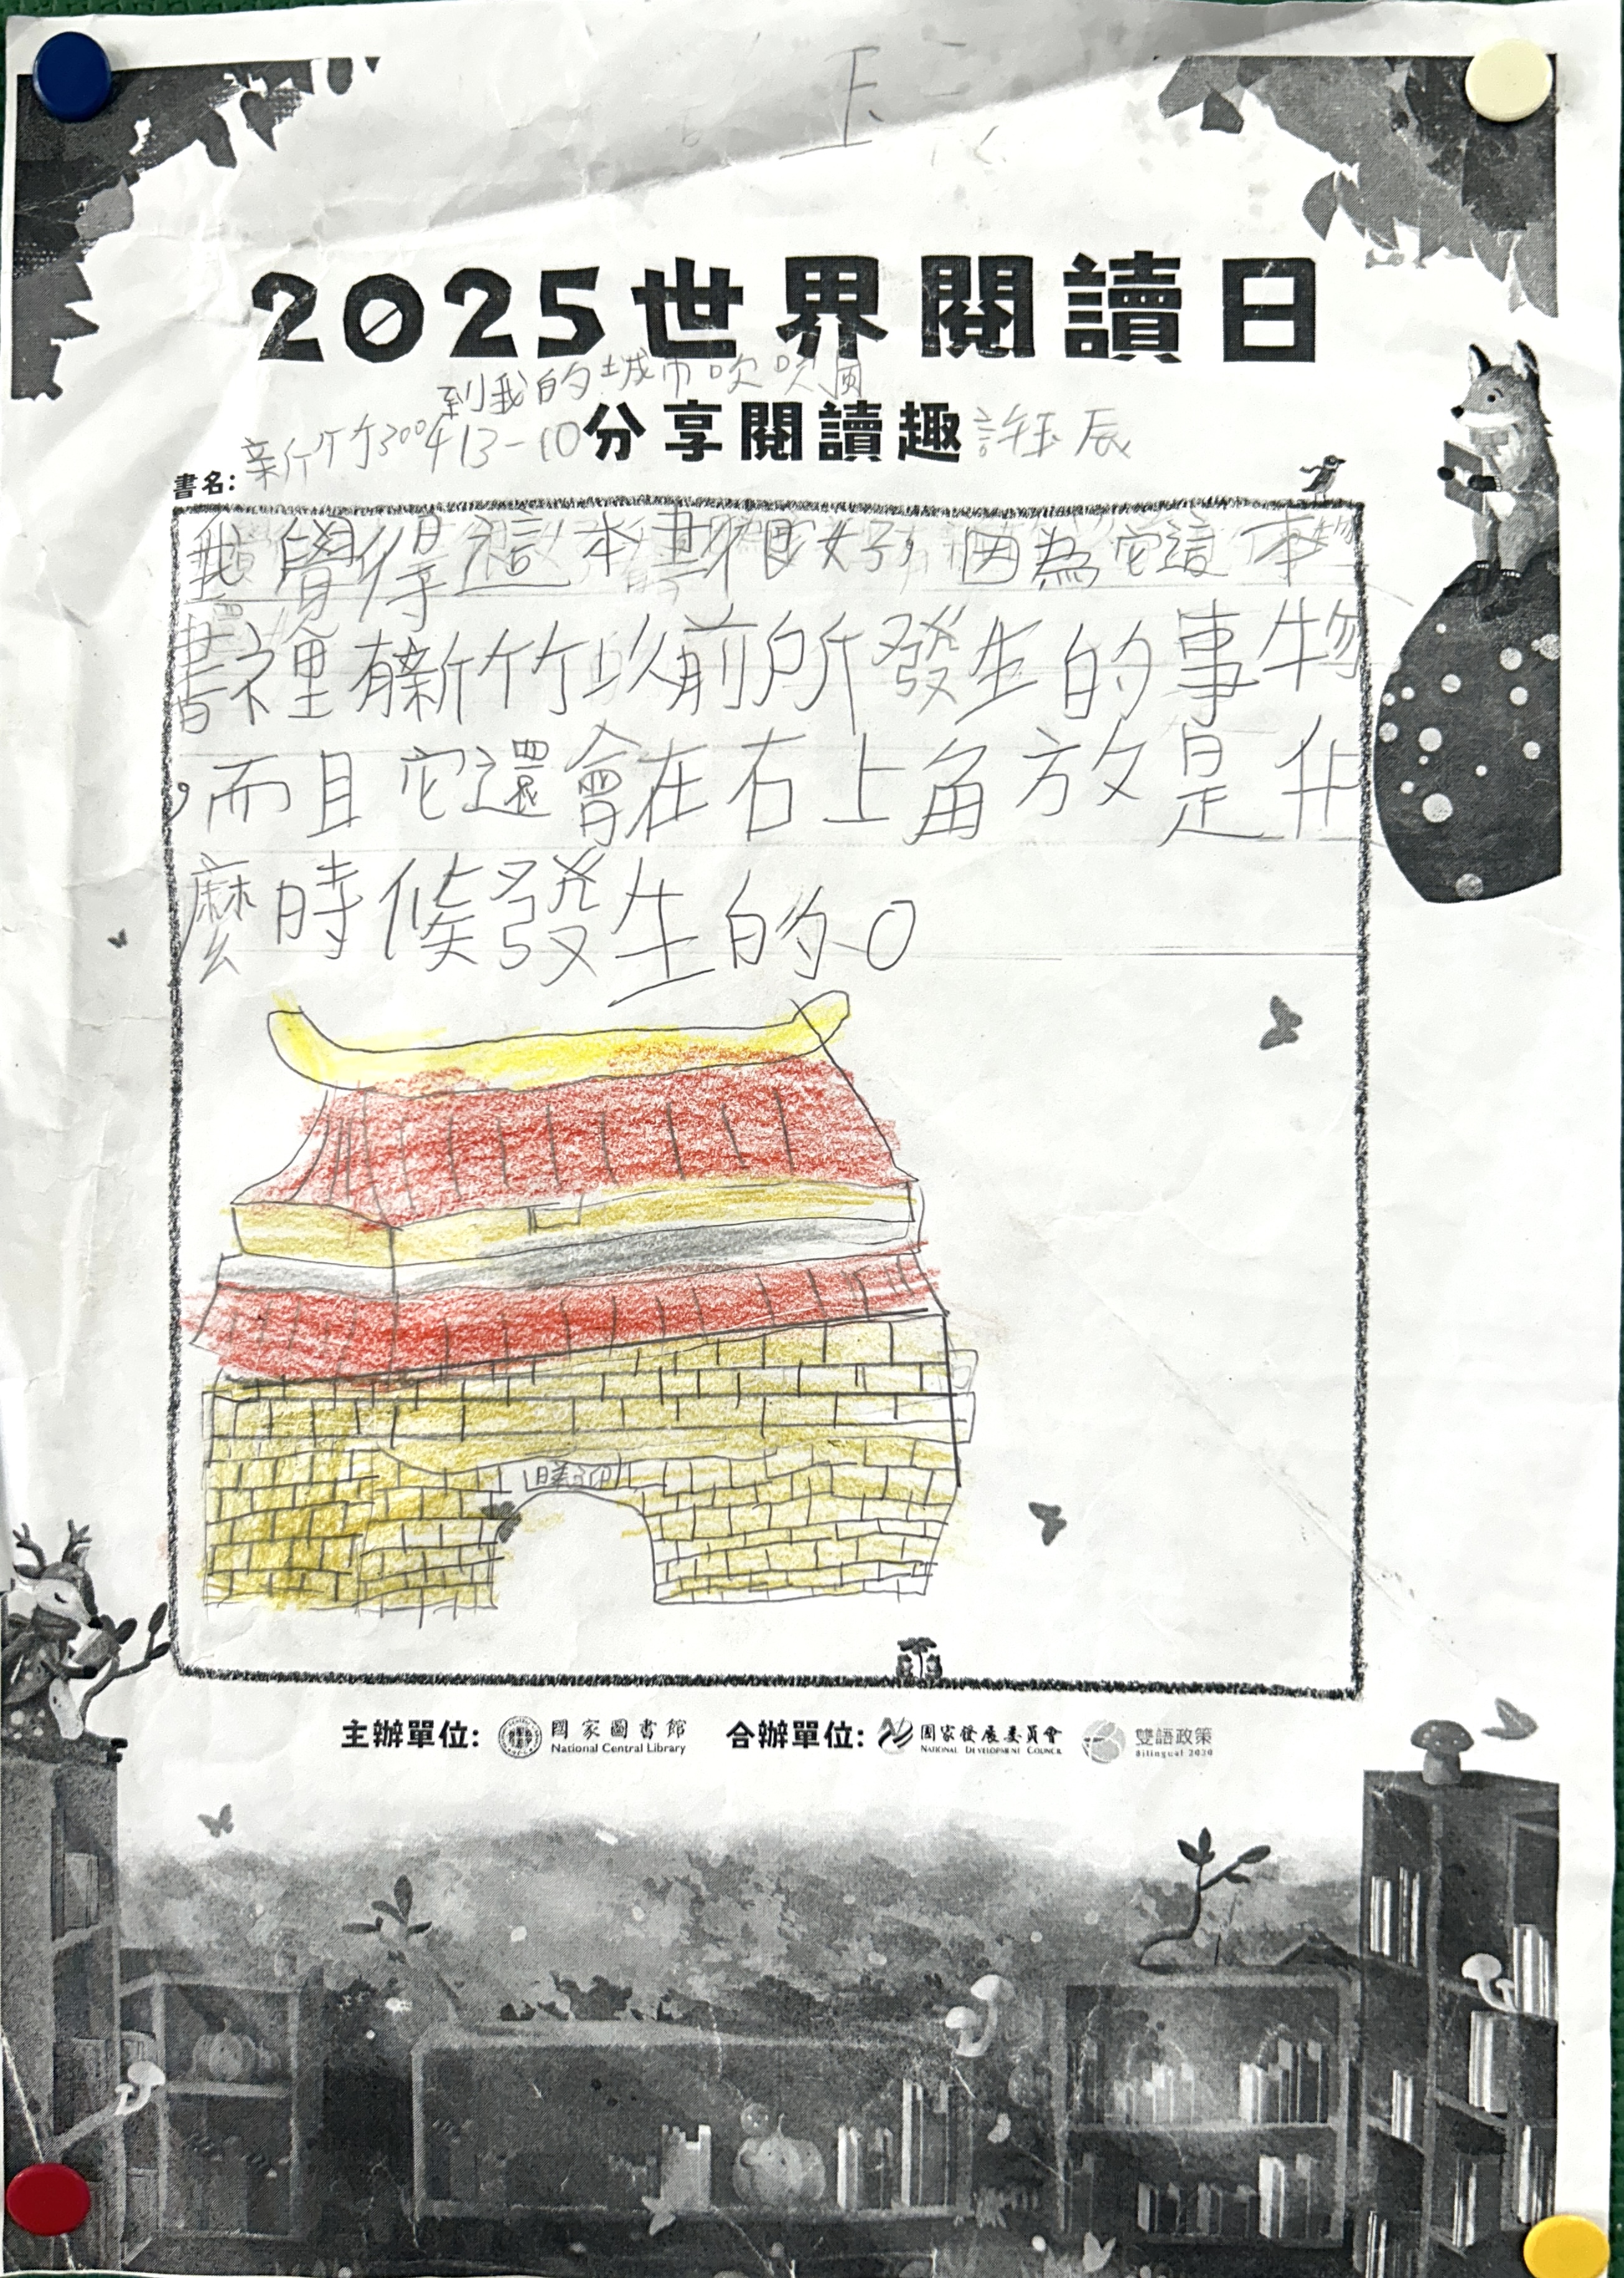 2025世界閱讀日
到我的城市吹吹風
分享閱讀趣
書名:新竹300 413-10 許玉辰
我覺得這本書很好,因為它這本
書裡有新竹以前所發生的事物
,而且它還會在右上角放是什
麼時候發生的。
主辦單位: 國家圖書館 合辦單位: 國家發展委員會 雙語政策
National Central Library NATIONAL DEVELOPMENT COUNCIL Bilingual 2030